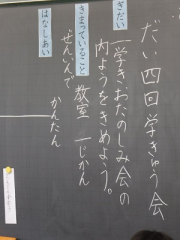 だい四回学きゅう会
ぎだい
一学きおたのしみ会の
内ようをきめよう。
きまっていること
教室 一じかん
ぜんいんで
かんたん
はなしあい